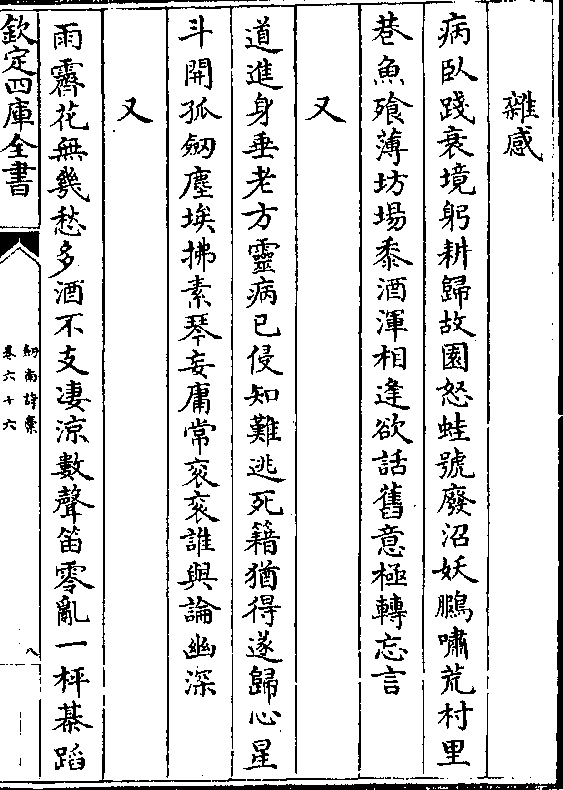 雜感
病臥踐衰境躬耕歸故園怒蛙號廢沼妖鵩嘯荒村里
巷魚飱薄坊場黍酒渾相逢欲話舊意極轉忘言
又
道進身垂老方靈病已侵知難逃死籍猶得遂歸心星
斗開孤劒塵埃拂素琴妄庸常衮衮誰與論幽深
又
雨霽花無幾愁多酒不支凄涼數聲笛零亂一枰棊蹈
欽定四庫全書
劒南詩稾
卷六十六
八